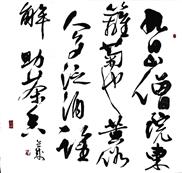 九日山僧院東
籬菊也黄俗
人多泛酒誰
解助茶香